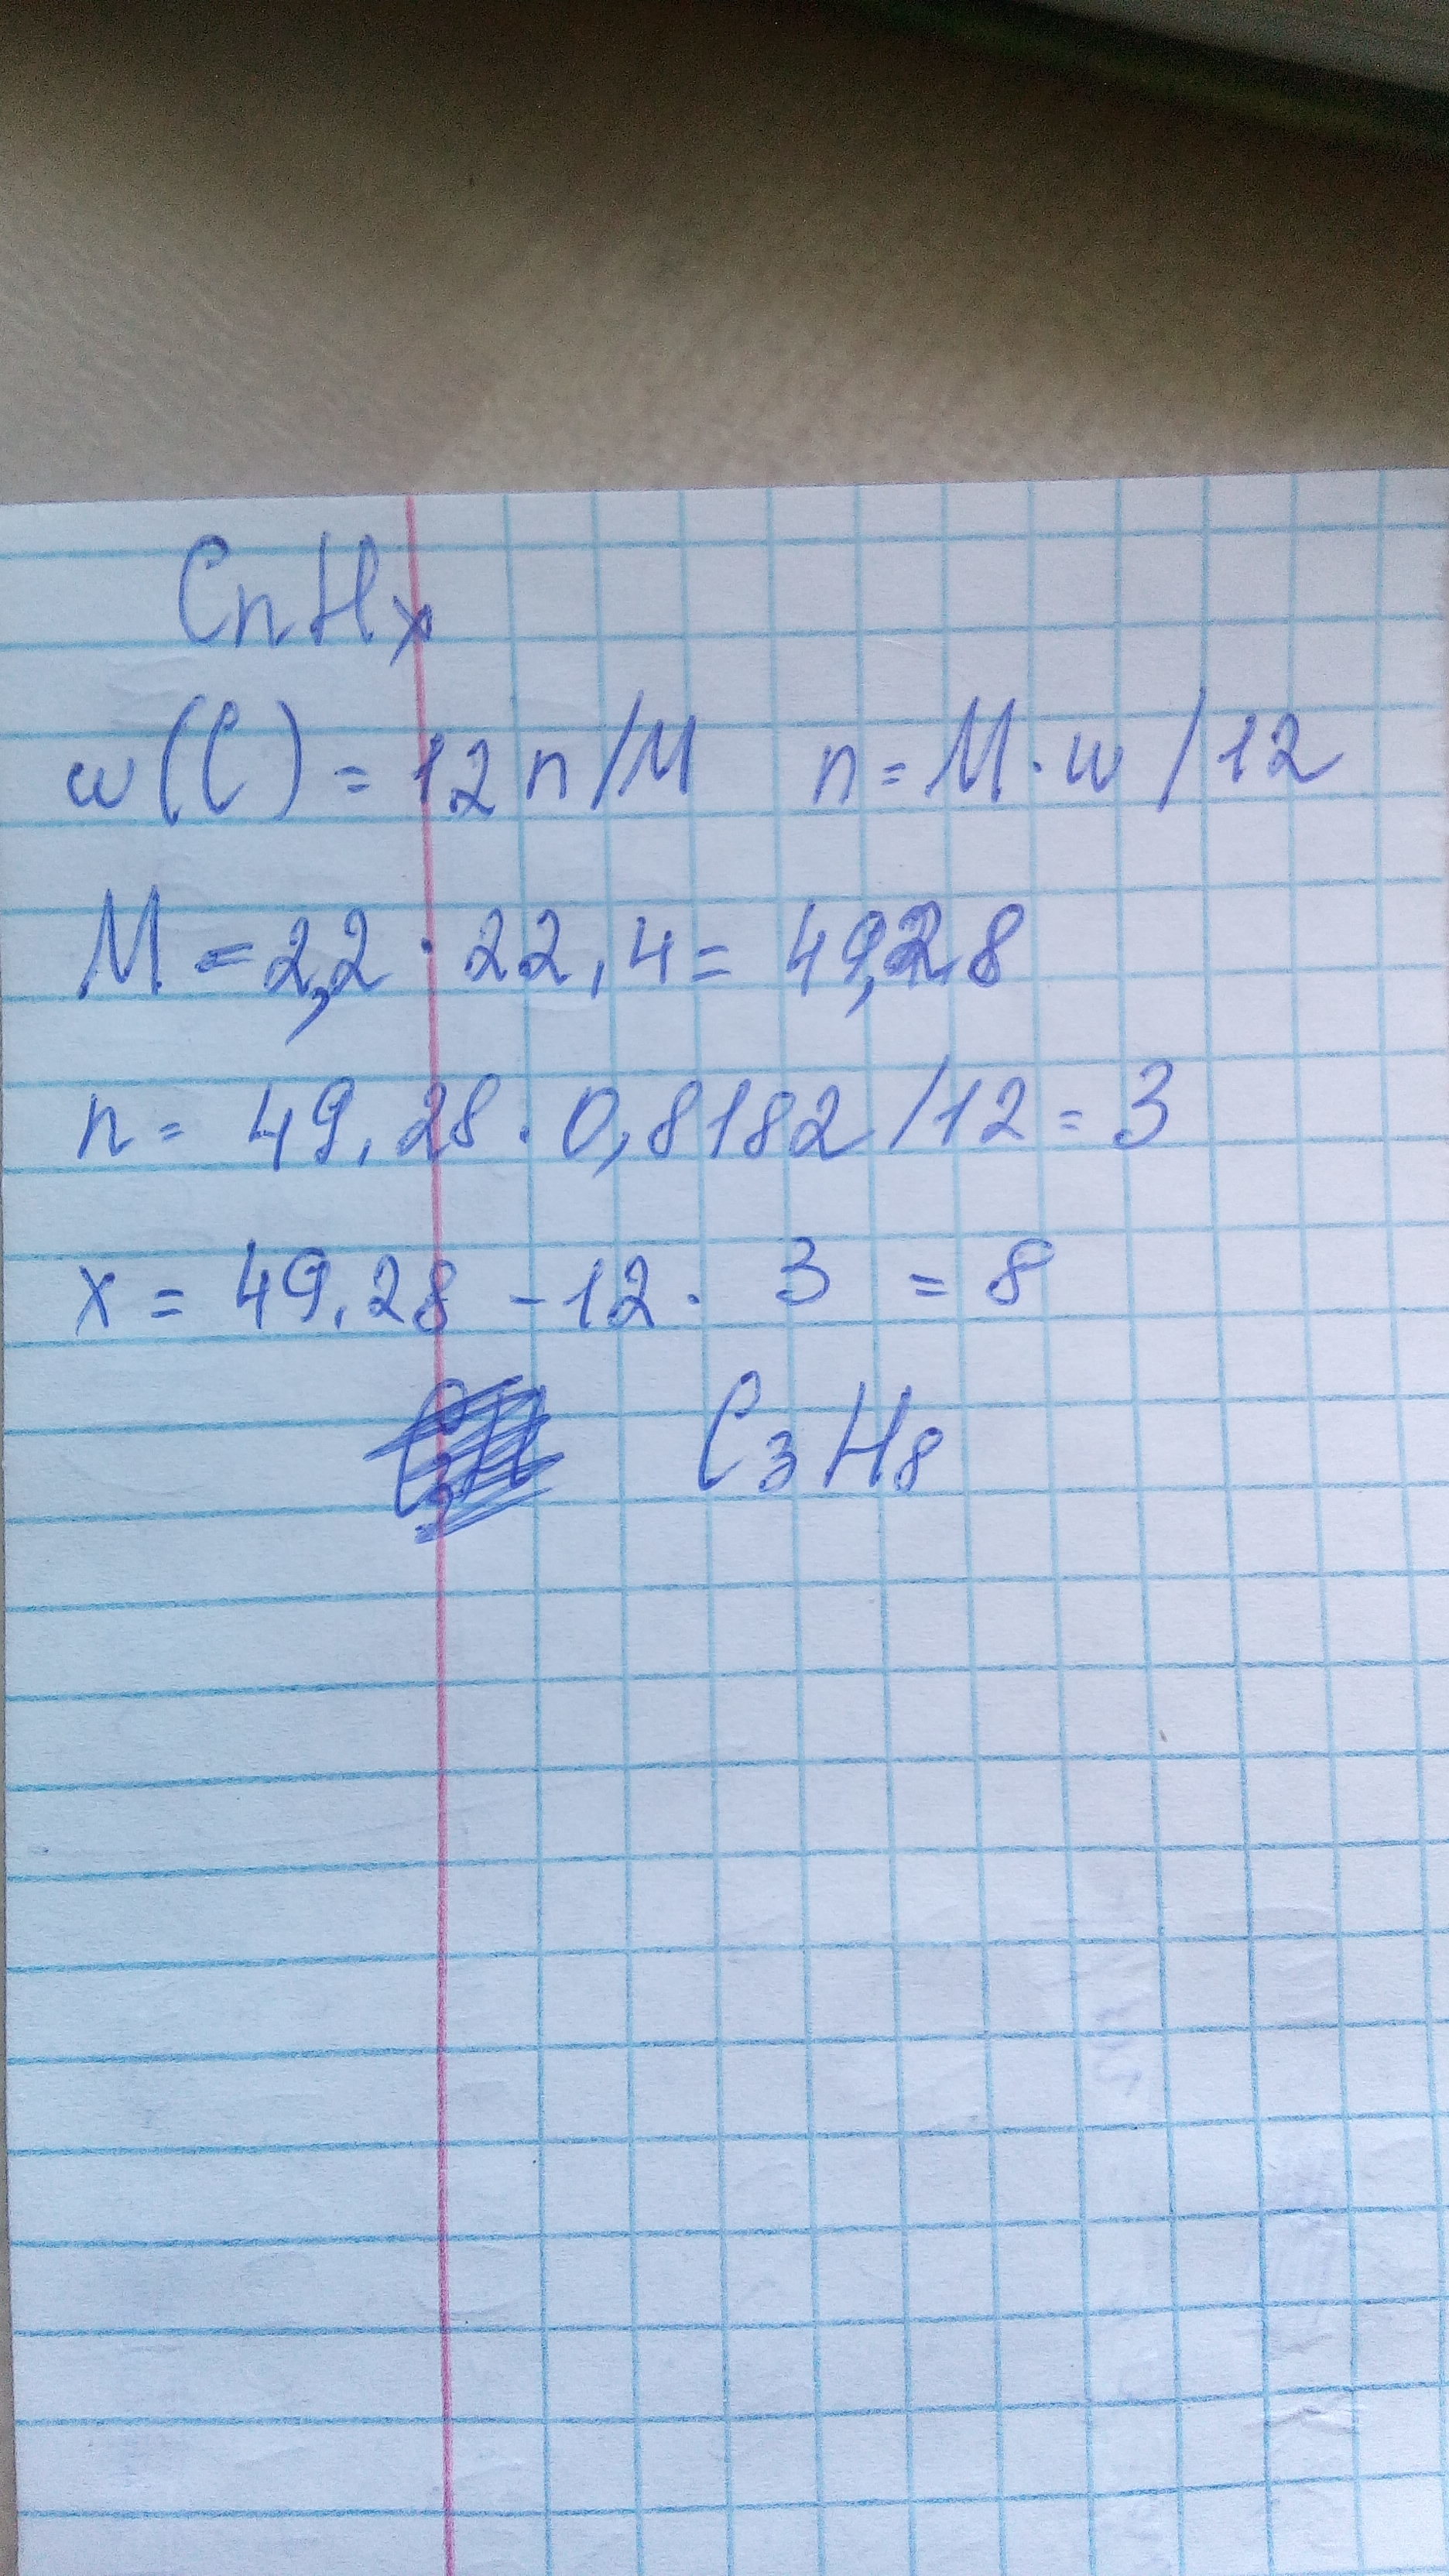 CnHx
w(C) = 12n/M n = M·w/12
M = 2,2 · 22,4 = 49,28
n = 49,28 · 0,8182/12 = 3
x = 49,28 - 12 · 3 = 8
C3H8